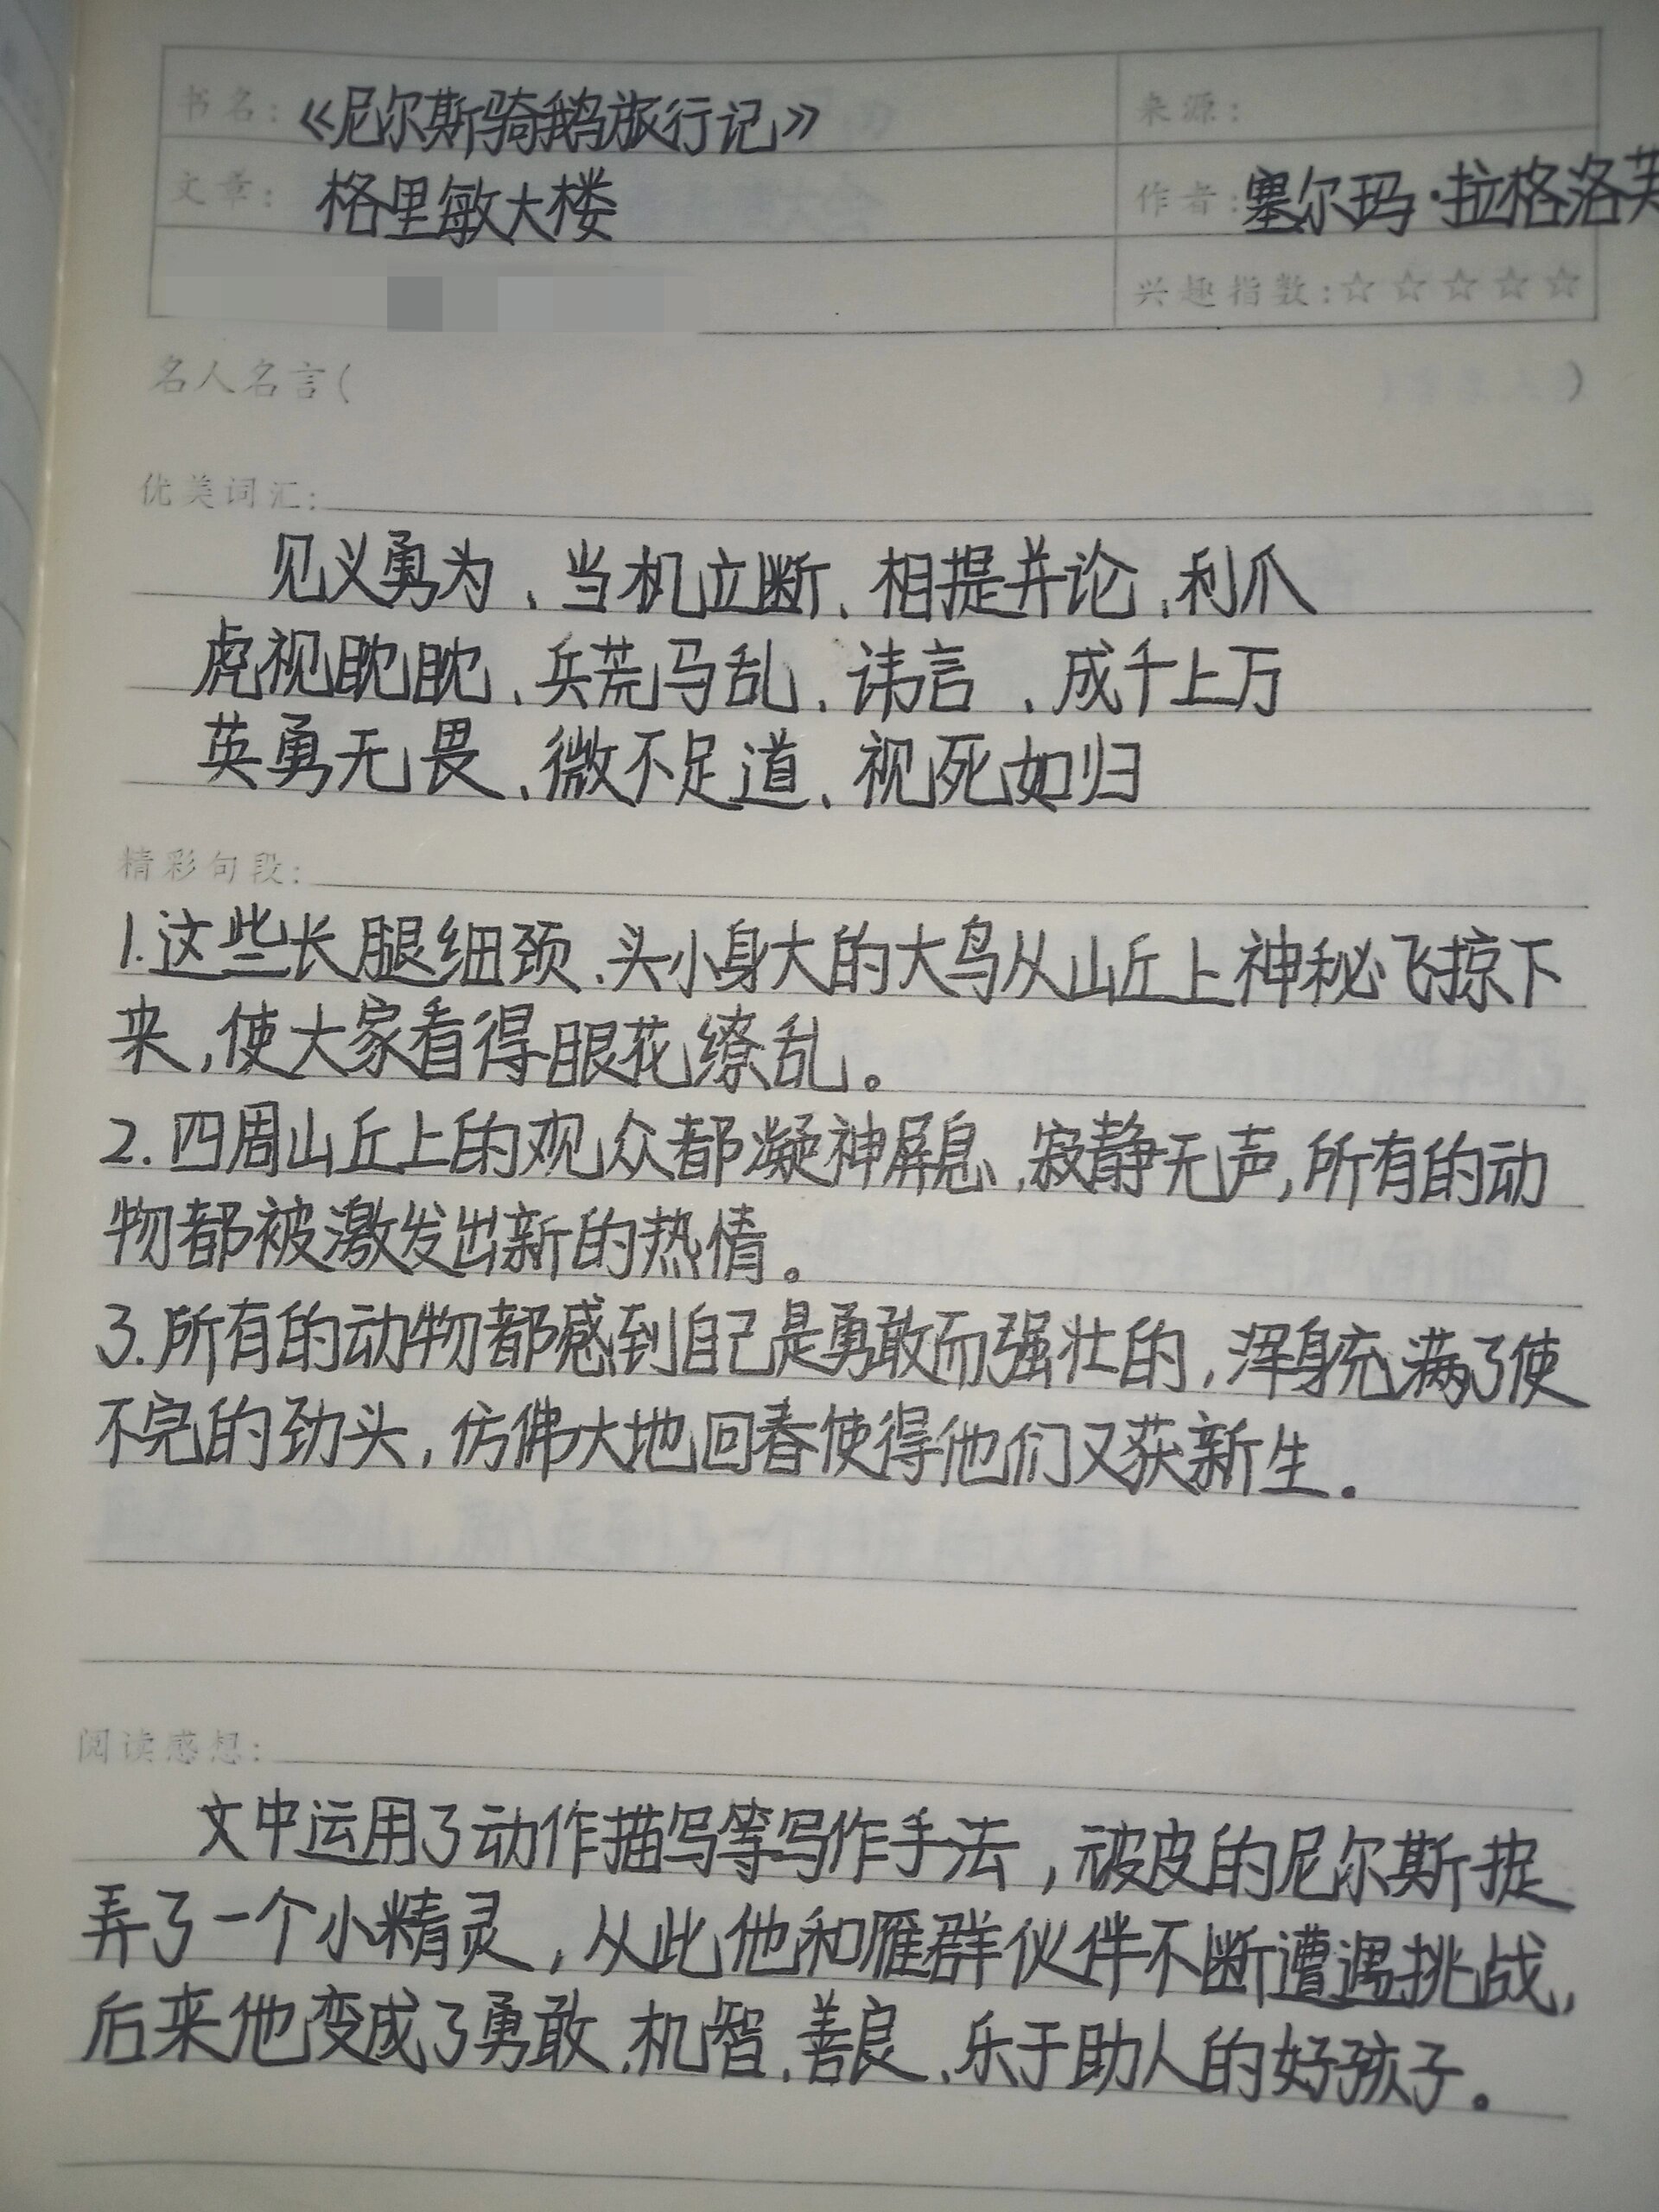 书名：《尼尔斯骑鹅旅行记》 来源：
文章：格里敏大楼 作者：塞尔玛·拉格洛芙
兴趣指数：☆☆☆☆☆
名人名言（ ）
优美词汇：
见义勇为、当机立断、相提并论、利爪
虎视眈眈、兵荒马乱、讳言、成千上万
英勇无畏、微不足道、视死如归
精彩句段：
1.这些长腿细颈、头小身大的大鸟从山丘上神秘飞掠下
来，使大家看得眼花缭乱。
2.四周山丘上的观众都凝神屏息、寂静无声，所有的动
物都被激发出新的热情。
3.所有的动物都感到自己是勇敢而强壮的，浑身充满了使
不完的劲头，仿佛大地回春使得他们又获新生。
阅读感想：
文中运用了动作描写等写作手法，的尼尔斯捉
弄了一个小精灵，从此他和雁群伙伴不断遭遇挑战，
后来他变成了勇敢、机智、善良、乐于助人的好孩子。